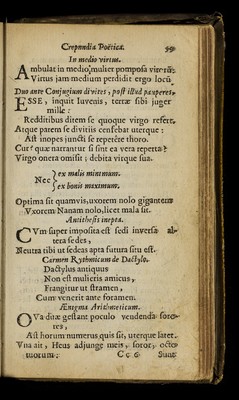 Crepundia Poëtica. 99
In medio virtus.
Ambulat in medio, mulier pomposa virorũ:
Virtus jam medium perdidit ergo locũ.
Duo ante Conjugium divites, post illud pauperes.
ESSE, inquit Iuvenis, terræ sibi juger
mille:
Redditibus ditem se quoque virgo refert.
Atque parem se divitiis censebat uterque:
Ast inopes juncti se repetêre thoro.
Cur? quæ narrantur si sint ea vera reperta?
Virgo onera omisit; debita virque sua.
Nec
ex malis minimum.
ex bonis maximum.
Optima sit quamvis, uxorem nolo giganteam
Vxorem Nanam nolo, licet mala sit.
Antithesis inepta.
CVm super imposita est sedi inversa al-
tera sedes,
Neutra tibi ut sedeas apta futura sitn est.
Carmen Rythmicum de Dactylo.
Dactylus antiquus
Non est mulieris amicus,
Frangitur ut stramen,
Cum venerit ante foramen.
Ænigma Arithmeticum.
OVa duæ gestant poculo vendenda soro-
res,
Ast horum numerus quis sit, uterque latet.
Vna ait, Heus adjunge meis, soror, octo
tuorum:
Cc 6 Sunt